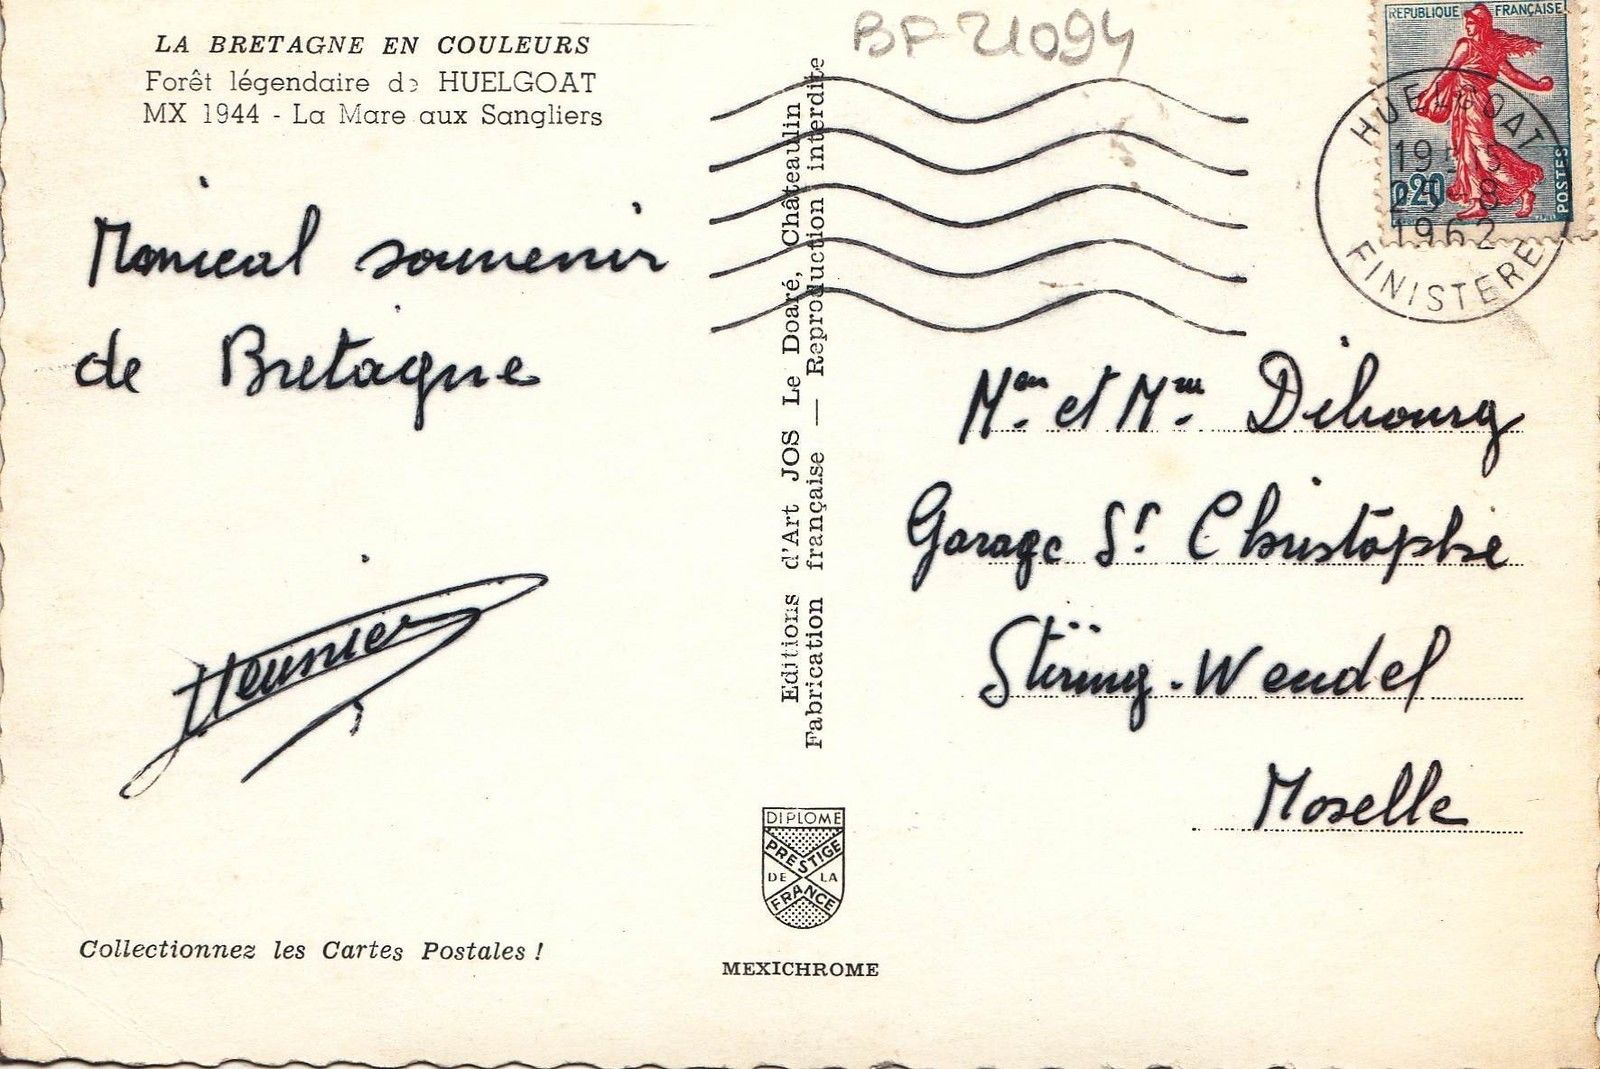 LA BRETAGNE EN COULEURS
Forêt légendaire de HUELGOAT
MX 1944 - La Mare aux Sangliers
BF 21094
REPUBLIQUE FRANÇAISE
0,20
POSTES
HUELGOAT
1962
FINISTERE
souvenir
de Bretagne
Meunier
Editions d'Art JOS Le Doaré, Châteaulin
Fabrication française — Reproduction interdite
Garage St Christophe
Stiring-Wendel
Moselle
DIPLOME
PRESTIGE
DE LA
FRANCE
Collectionnez les Cartes Postales !
MEXICHROME